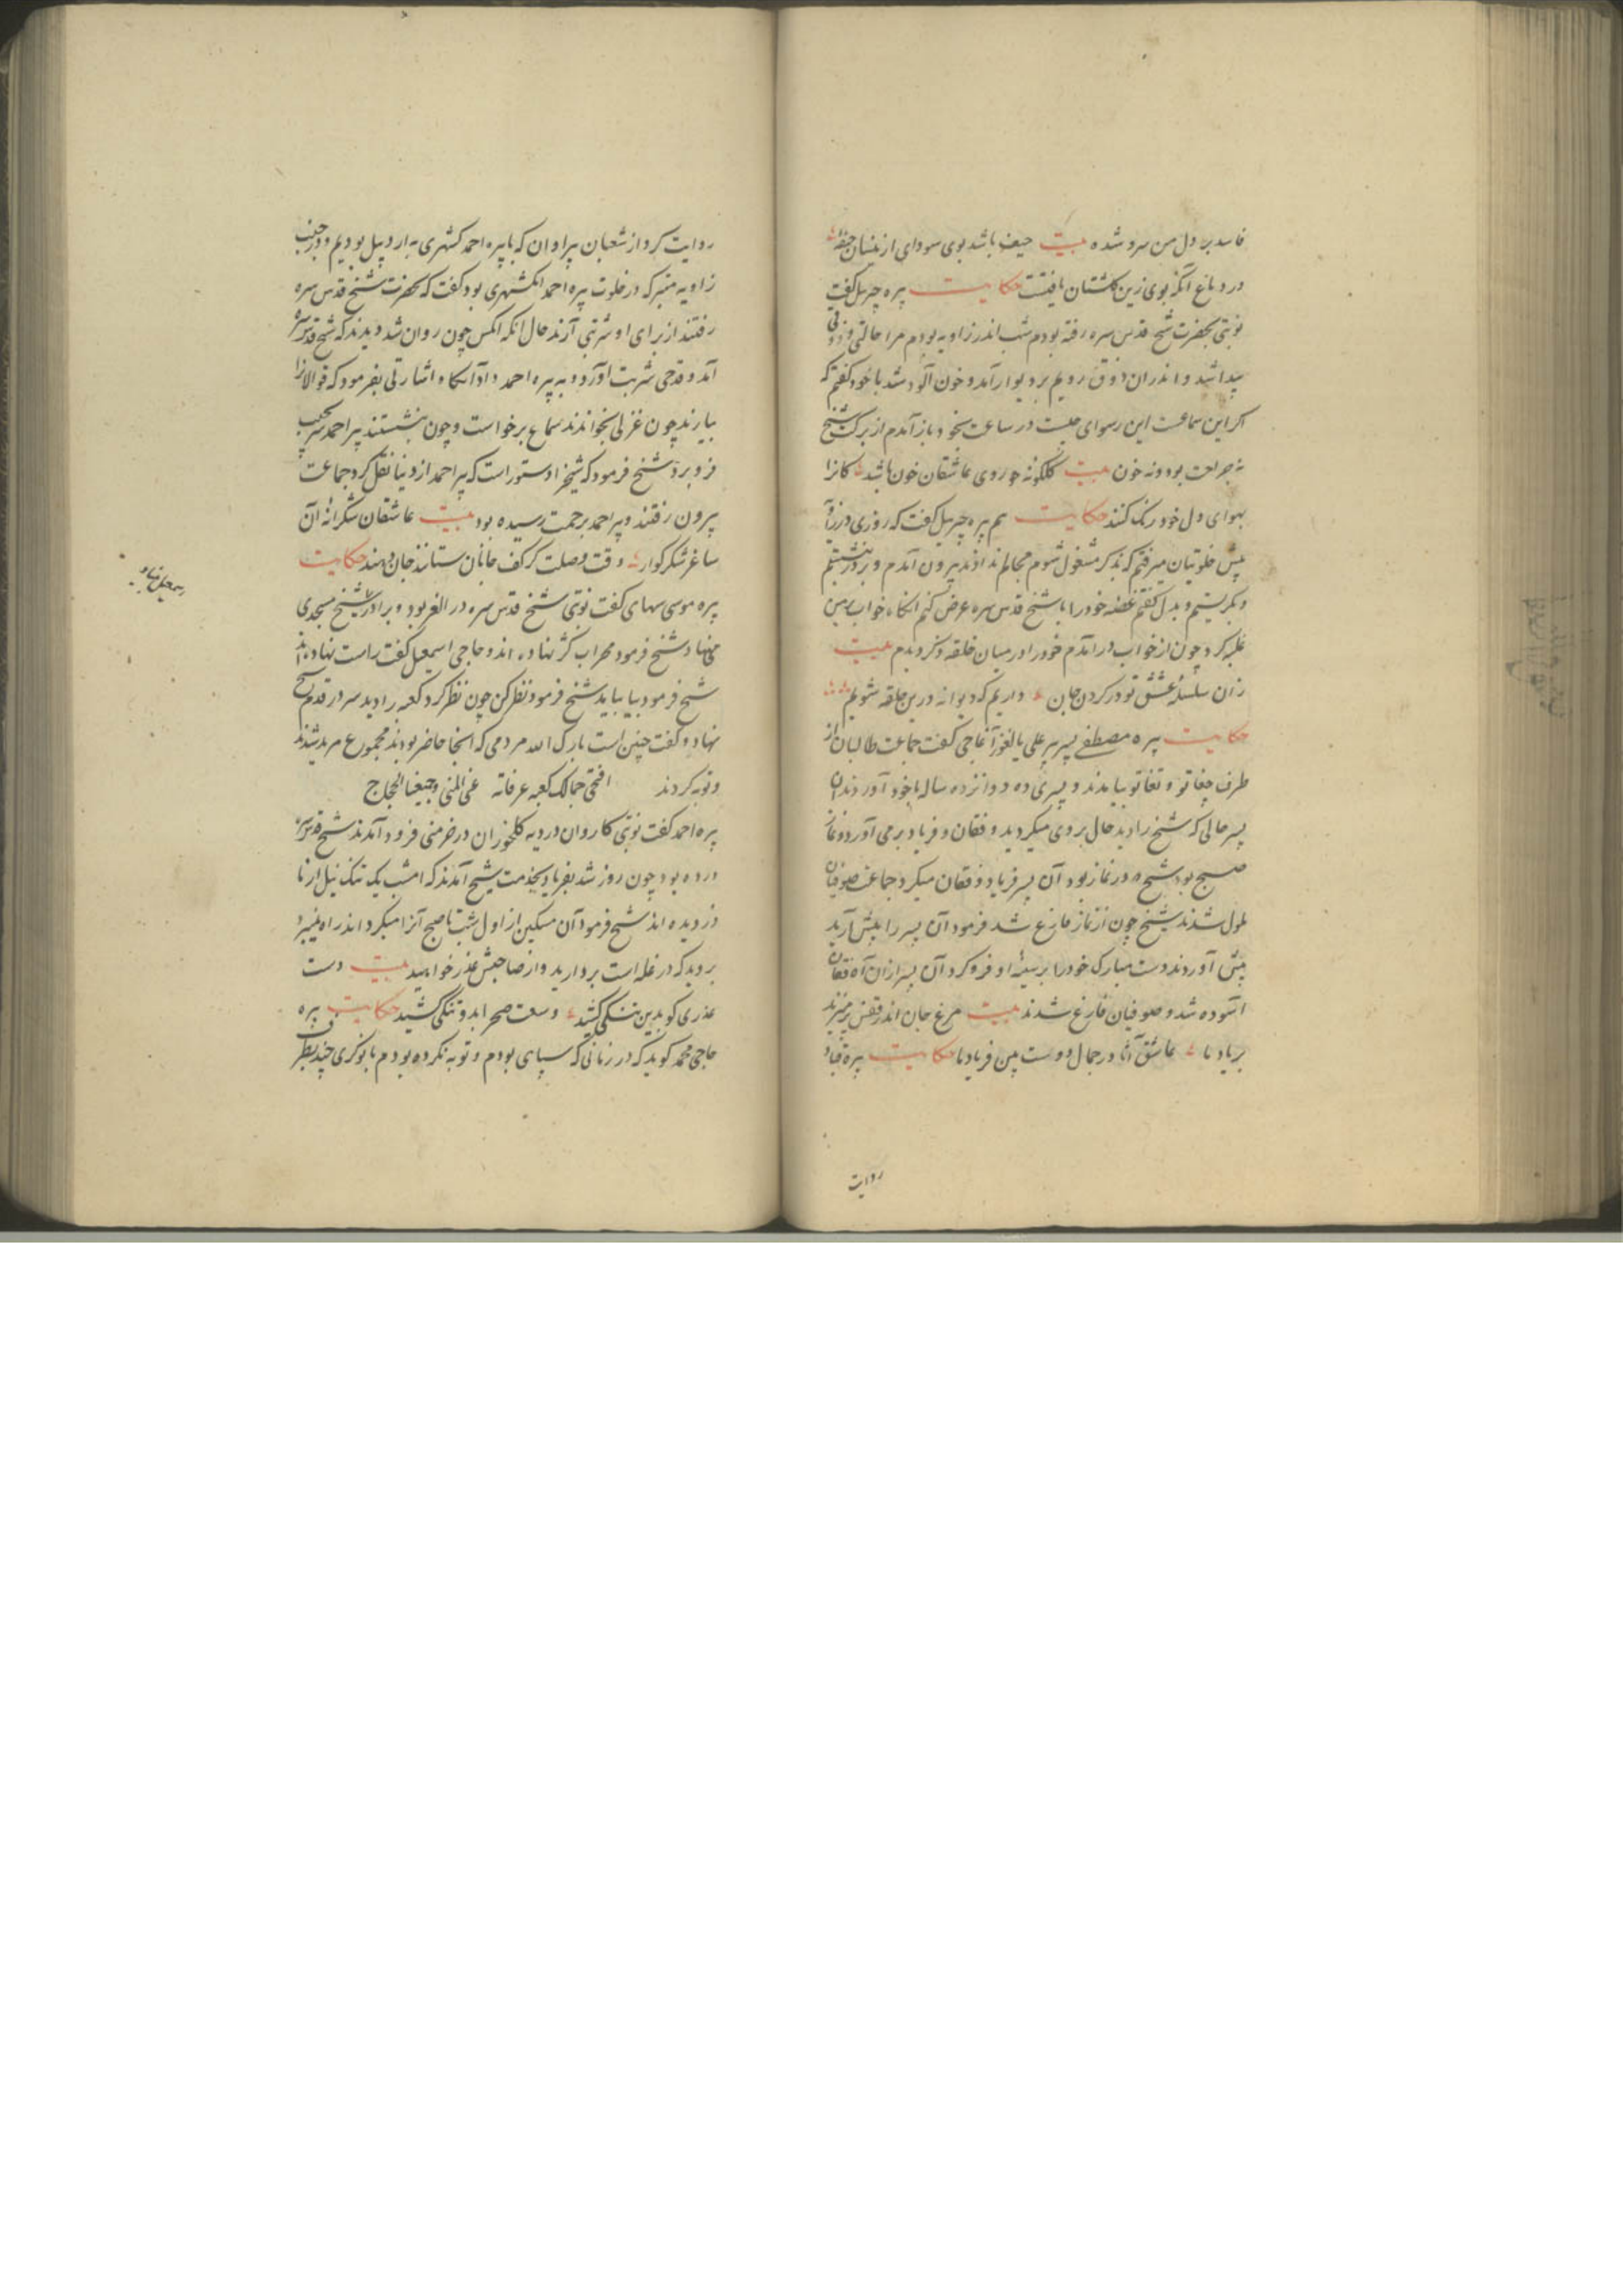 فاسد بر دل من سرد شده بیت حیف باشد بوی سودای ازینسان
در دماغ آنکه بوی زین گلستان یافتست حکایت پیره جبریل گفت
نوبتی بحضرت شیخ قدس سره رفته بودم شب اندر زاویه بودم مرا حالتی و ذوقی
پیدا شد و اندران ذوق رویم بر دیوار آمد و خون آلود شد با خود گفتم که
اگر این سماعست این رسوای چیست در ساعت بخود باز آمدم از برکت شیخ
نه جراحت بود و نه خون بیت گلگونه روی عاشقان خون باشد کانرا
بهوای دل خود رنگ کنند حکایت هم پیره جبریل گفت که روزی در زاویه
پیش خلوتیان میرفتم که بذکر مشغول شوم مجالم ندادند بیرون آمدم و بر در بنشستم
و بگریستم و بدل گفتم غصه خود را با شیخ قدس سره عرض کنم آنگاه خواب بر من
غلبه کرد چون از خواب درآمدم خود را در میان حلقه ذکر دیدم بیت
زان سلسله عشق تو در گردن جان داریم که دیوانه درین حلقه شویم
حکایت پیره مصطفی پسر پیر علی یالغوز آغاجی گفت جماعت طالبان از
طرف جغاتو و تغاتو بیامدند و پسری ده دوازده ساله با خود آوردند آن
پسر حالی که شیخ را دید حال بروی میگردید و فغان و فریاد برمی آورد و نماز
صبح بود شیخ در نماز بود آن پسر فریاد و فغان میکرد جماعت صوفیان
ملول شدند شیخ چون از نماز فارغ شد فرمود آن پسر را پیش آرید
پیش آوردند دست مبارک خود را بر سینه او فرو کرد آن پسر ازان آه و فغان
آسوده شد و صوفیان فارغ شدند بیت مرغ جان اندر قفس پر میزند
بر یاد ما عاشق آنا در جمال دوست بین فریاد ما حکایت پیره قباد
روایت
روایت کرد از شعبان پیراوان که با پیره احمد کشهری به اردبیل بودیم و در جنب
زاویه متبرکه در خلوت پیره احمد انکشهری بود گفت که بحضرت شیخ قدس سره
رفتند از برای او شربتی آرند حال آنکه آنکس چون روان شد دیدند که شیخ قدس سره
آمد و قدحی شربت آورد و به پیره احمد داد آنگاه اشارتی بفرمود که قوالانرا
بیارند چون غزلی بخواندند سماع برخواست و چون بنشستند پیر احمد سر بجیب
فرو برد شیخ فرمود که شیخزاد دستور است که پیر احمد از دنیا نقل کرد جماعت
بیرون رفتند و پیر احمد برحمت رسیده بود بیت عاشقان شکرانه آن
ساغر شکر گوار وقت وصلت کز کف جانان ستانند جان دهند حکایت
پیره موسی سهای گفت نوبتی شیخ قدس سره در الغر بود و برادر شیخ مسجدی
می نهاد شیخ فرمود محراب کژ نهاده اند و حاجی اسمعیل گفت راست نهاده اند
شیخ فرمود بیا بیامد شیخ فرمود نظر کن چون نظر کرد کعبه را دید سر در قدم شیخ
نهاد و گفت چنین است بارک الله مردمی که آنجا حاضر بودند مجموع مرید شدند
و توبه کردند افتحی جمالک کعبه عرفاته غنی المنی و جیعنا الحجاج
پیره احمد گفت نوبتی کاروان در دیه کلخوران در خرمنی فرود آمدند شیخ قدس سره
در ده بود چون روز شد بفریاد بخدمت شیخ آمدند که امشب یک تنک نیل از ما
دزدیده اند شیخ فرمود آن مسکین از اول شب تا صبح آنرا میکرد اند راه نمیبرد
بروید که در غله است بردارید و از صاحبش عذر خواهید بیت دست
عذری کوبدین تنگی کشید وسعت صحرا بدو تنگی کشید حکایت پیره
حاجی محمد گوید که در زمانی که سپاهی بودم و توبه نکرده بودم با نوکری چند بطرف